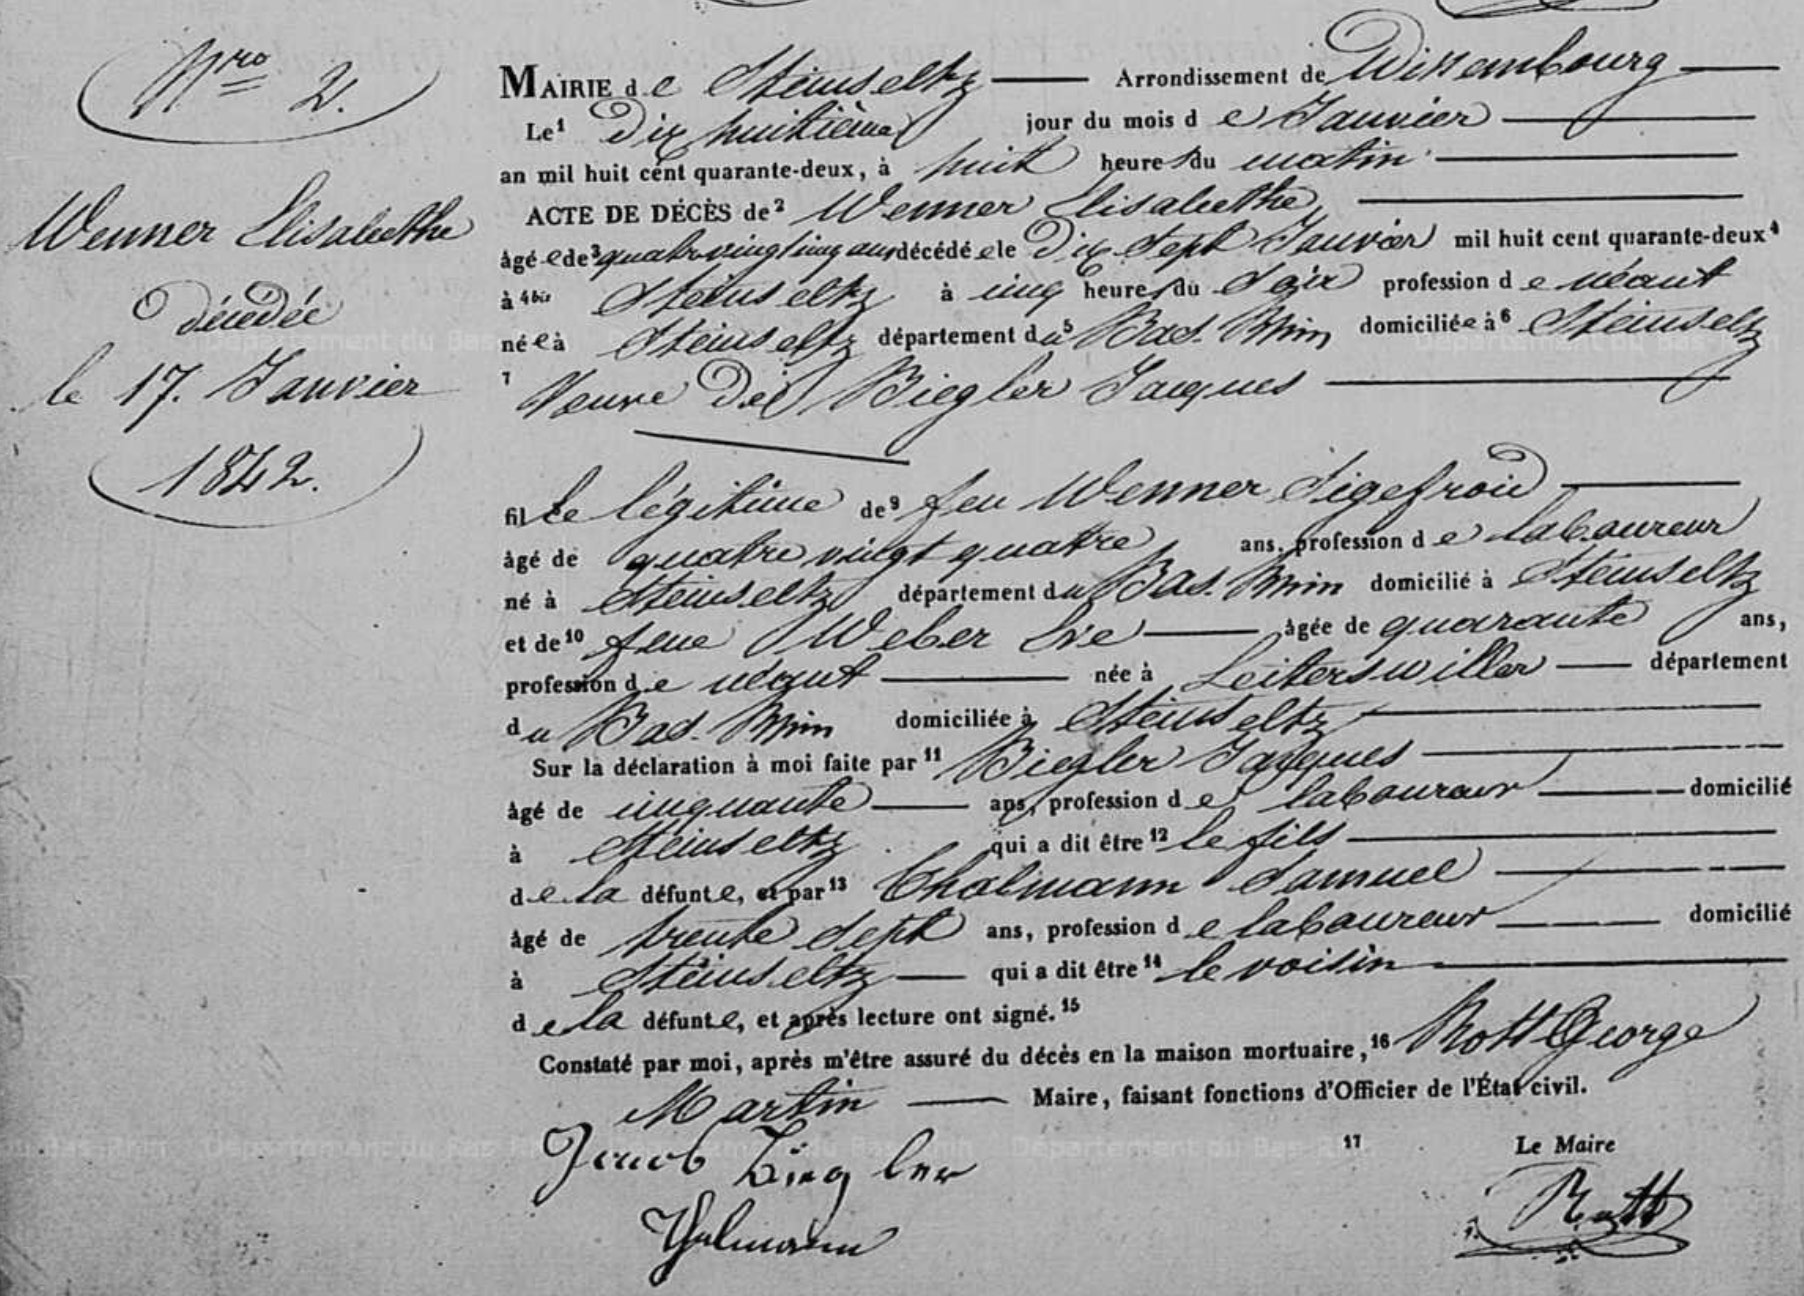 Nro 2.
Wenner Elisabethe
décédée
le 17. Janvier
1842.
MAIRIE de Steinseltz Arrondissement de Wissembourg
Le 1 dix huitième jour du mois de Janvier
an mil huit cent quarante-deux, à huit heures du matin
ACTE DE DÉCÈS de 2 Wenner Elisabethe,
âgée de 3 quatre vingt cinq ans décédée le dix sept Janvier mil huit cent quarante-deux 4
à 4 bis Steinseltz à cinq heures du soir profession de néant
née à Steinseltz département du 5 Bas-Rhin domiciliée à 6 Steinseltz
7 Veuve de Biegler Jacques
fille légitime de 9 feu Wenner Sigefroid
âgé de quatre vingt quatre ans, profession de laboureur
né à Steinseltz département du Bas-Rhin domicilié à Steinseltz
et de 10 feue Weber Eve âgée de quarante ans,
profession de néant née à Leiterswiller département
du Bas-Rhin domiciliée à Steinseltz
Sur la déclaration à moi faite par 11 Biegler Jacques
âgé de cinquante ans, profession de laboureur domicilié
à Steinseltz qui a dit être 12 le fils
de la défunte, et par 13 Thalmann Samuel
âgé de trente sept ans, profession de laboureur domicilié
à Steinseltz qui a dit être 14 le voisin
de la défunte, et après lecture ont signé. 15
Constaté par moi, après m'être assuré du décès en la maison mortuaire, 16 Rott George
Martin Maire, faisant fonctions d'Officier de l'État civil.
Jacob Ziegler 17 Le Maire
Thalmann Rott
Département du Bas-Rhin